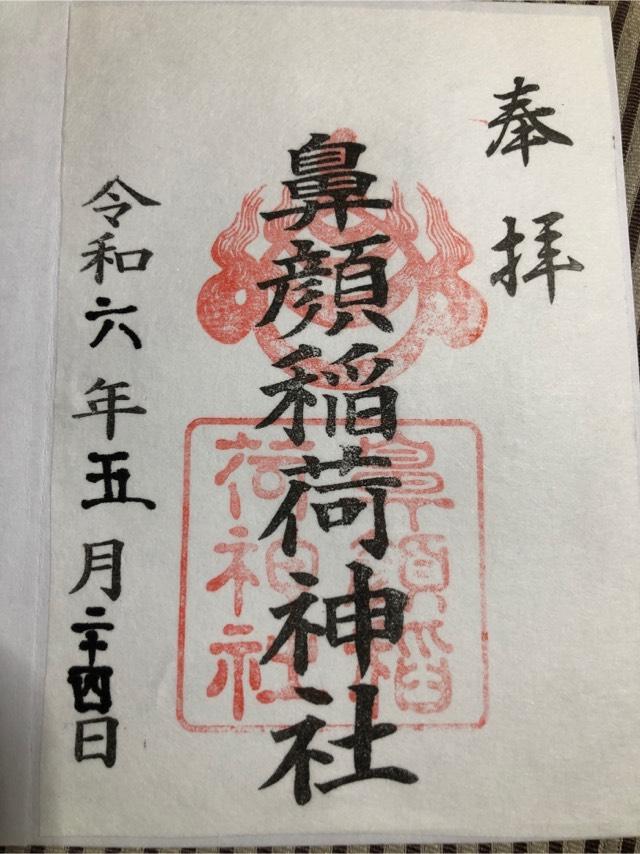 奉拝
鼻顔稲荷神社
鼻顔稲
荷神社
令和六年五月二十四日